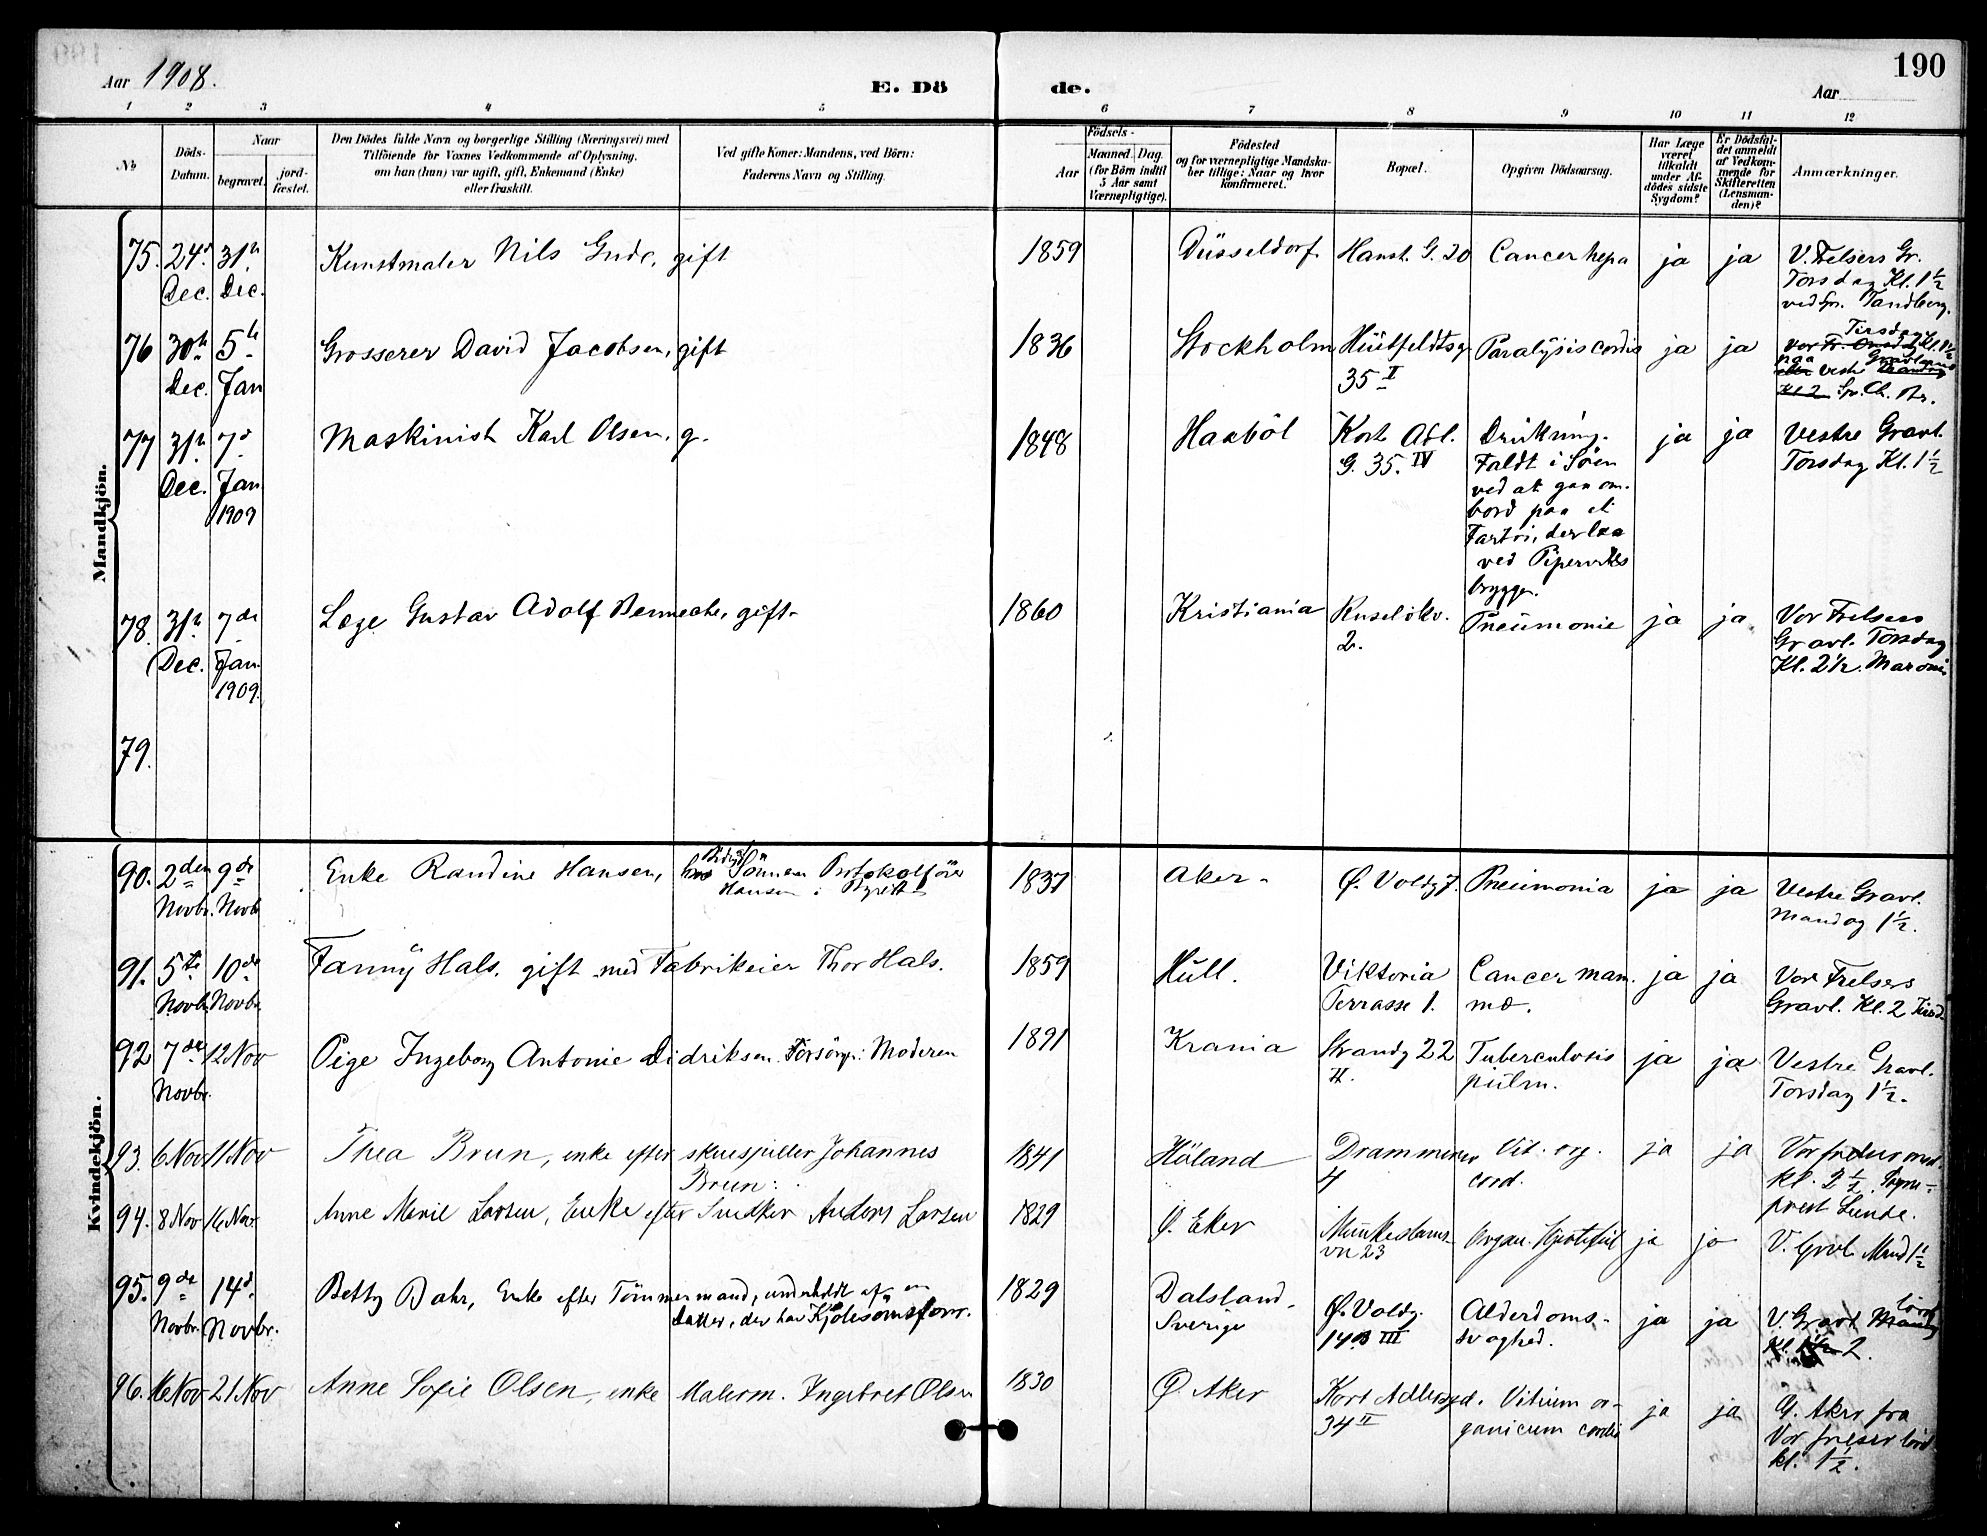 Aar 1908.
E. Dö de.
190
Aar
1 2 3 4 5 6 7 8 9 10 11 12
No
Döds-Datum.
Naar
begravet.
jord-fæstet.
Den Dödes fulde Navn og borgerlige Stilling (Næringsvei) med
Tilföiende for Voxnes Vedkommende af Oplysning,
om han (hun) var ugift, gift, Enkemand (Enke)
eller fraskilt.
Ved gifte Koner: Mandens, ved Börn:
Faderens Navn og Stilling.
Födsels-
Aar
Maaned. Dag.
(for Börn indtil
5 Aar samt
Værnepligtige).
Födested
og for værnepligtige Mandska-
ber tillige: Naar og hvor
konfirmeret.
Bopæl.
Opgiven Dödsaarsag.
Har Læge
været
tilkaldt
under Af-
dödes sidste
Sygdom?
Er Dödsfal-
det anmeldt
af Vedkom-
mende for
Skifteretten
(Lensman-
den)?
Anmærkninger.
Mandkjön.
75. 24d Dec. 31te Dec. Kunstmaler Nils Gude, gift 1859 Düsseldorf Hanst. G. 20 Cancer hepa ja ja V. Frelsers Gr.
Torsdag Kl. 1½
ved Spr. Tandberg.
76 30te Dec. 5te Jan Grosserer David Jacobsen, gift 1836 Stockholm Huitfeldtsg
35 II Paralysis cordis ja ja Tirsdag
Vor Fr. Onsdag Kl. 1½
paa Vestre Gravlund
Kl 2 Spr. Ch. Br.
77 31te Dec. 7d Jan 1909 Maskinist Karl Olsen, g. 1848 Haaböl Kort Adl.
G. 35. IV Drukning.
Faldt i Söen
ved at gaa om-
bord paa et
Fartöi, der laa
ved Piperviks
bryggen. ja ja Vestre Gravl.
Torsdag Kl. 1½
78. 31te Dec. 7de Jan. 1909. Læge Gustav Adolf Benneche, gift 1860 Kristiania Ruselökv.
2. Pneumonie ja ja Vor Frelsers
Gravl. Torsdag
Kl. 2½. Maroni
79.
Kvindekjön.
90. 2den Novbr. 9de Novb Enke Randine Hansen, Sönnen Protokolförer
Hansen i Byrett 1837 Aker Ø. Voldg 7. Pneumonia ja ja Vestre Gravl.
Mandag 1½.
91. 5te Novb. 10de Novbr. Fanny Hals, gift med Fabrikeier Thor Hals. 1859 Hull. Viktoria
Terrasse 1. Cancer mam-
mæ. ja ja Vor Frelsers
Gravl. Kl. 2 Tirsd
92 7de Novbr. 12 Nov Pige Ingeborg Antonie Didriksen Forsörg: Moderen 1891 Krania Strandg 22
II. Tuberculosis
pulm. ja ja Vestre Gravl.
Torsdag 1½.
93. 6 Nov 11 Nov Thea Brun, enke efter skuespiller Johannes
Brun: 1841 Höland Drammensv
4 Vit. org.
cord. ja ja Vor frelser onsd.
kl. 2½. Sogne-
prest Lunde.
94. 8 Nov 16 Nov Anne Marie Larsen, Enke efter Snedker Anders Larsen 1829 Ø. Eker Munkedams-
vn 23 Organ. Hjertefeil ja ja V. Gravl. Mand 1½
95. 9de Novbr. 14d. Novbr. Betty Dahr, Enke efter Tömmermand, underholdt af en
Datter, der har Kjolesömsforr. 1829 Dalsland
Sverige Ø. Voldg.
14 III Alderdoms-
svaghed. ja ja V. Gravl lörd
Kl. 2.
96. 16 Nov 21 Nov Anne Sofie Olsen, enke Malerm. Ingebret Olsen 1830 Ø. Aker Kort Adlersgd.
34 II Vitium or-
ganicum cordis ja ja Ø. Aker fra
Vor frelser lörd
kl. 1½.